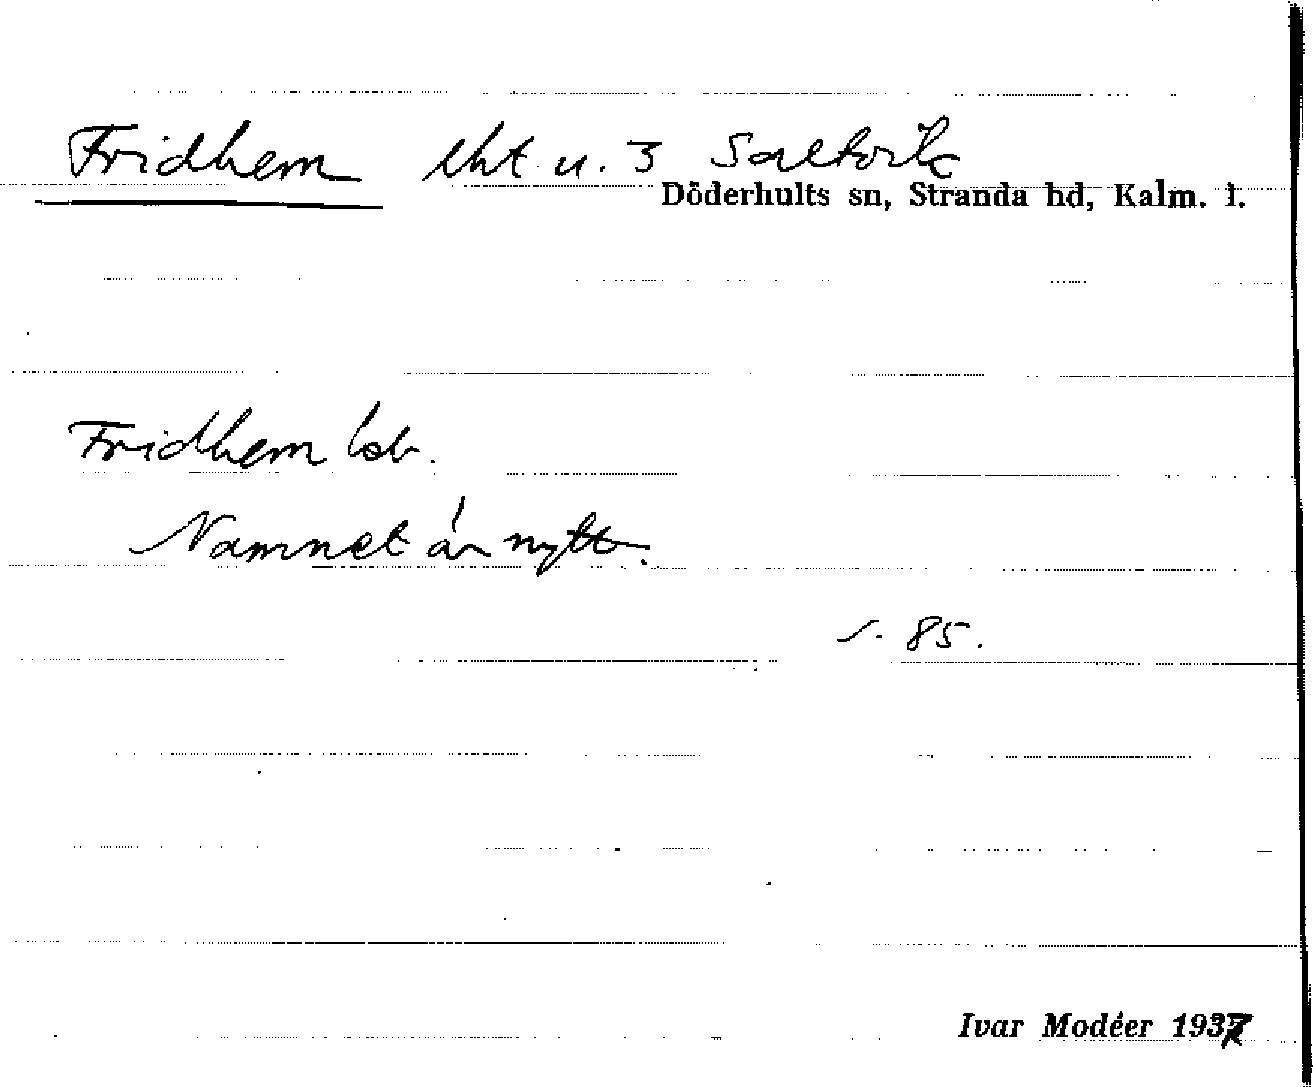 Fridhem lht u. 3 Saltvik
Döderhults sn, Stranda hd, Kalm. l.
Fridhem lsb.
Namnet är nytt.
s. 85.
Ivar Modéer 1937